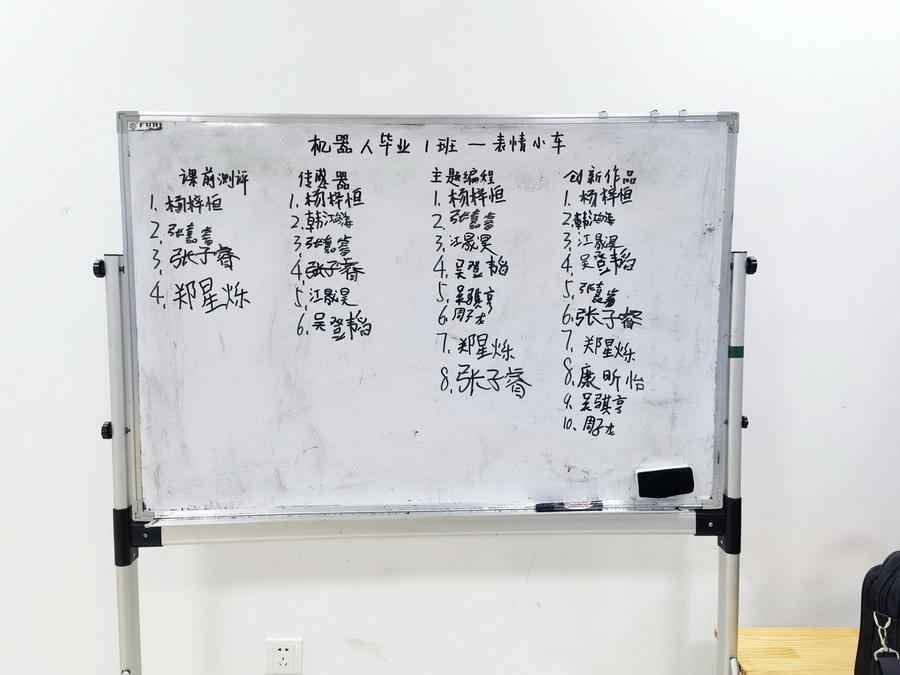 机器人毕业1班一表情小车
课前测评
1.杨梓恒
2.张嘉
3.张子睿
4.郑星烁
传感器
1.杨梓恒
2.韩江海
3.张嘉
4.张子睿
5.江晟昊
6.吴登韬
主题编程
1.杨梓恒
2.张嘉
3.江晟昊
4.吴登韬
5.吴骐亨
6.周子龙
7.郑星烁
8.张子睿
创新作品
1.杨梓恒
2.韩江海
3.江晟昊
4.吴登韬
5.张嘉
6.张子睿
7.郑星烁
8.康昕怡
9.吴骐亨
10.周子龙